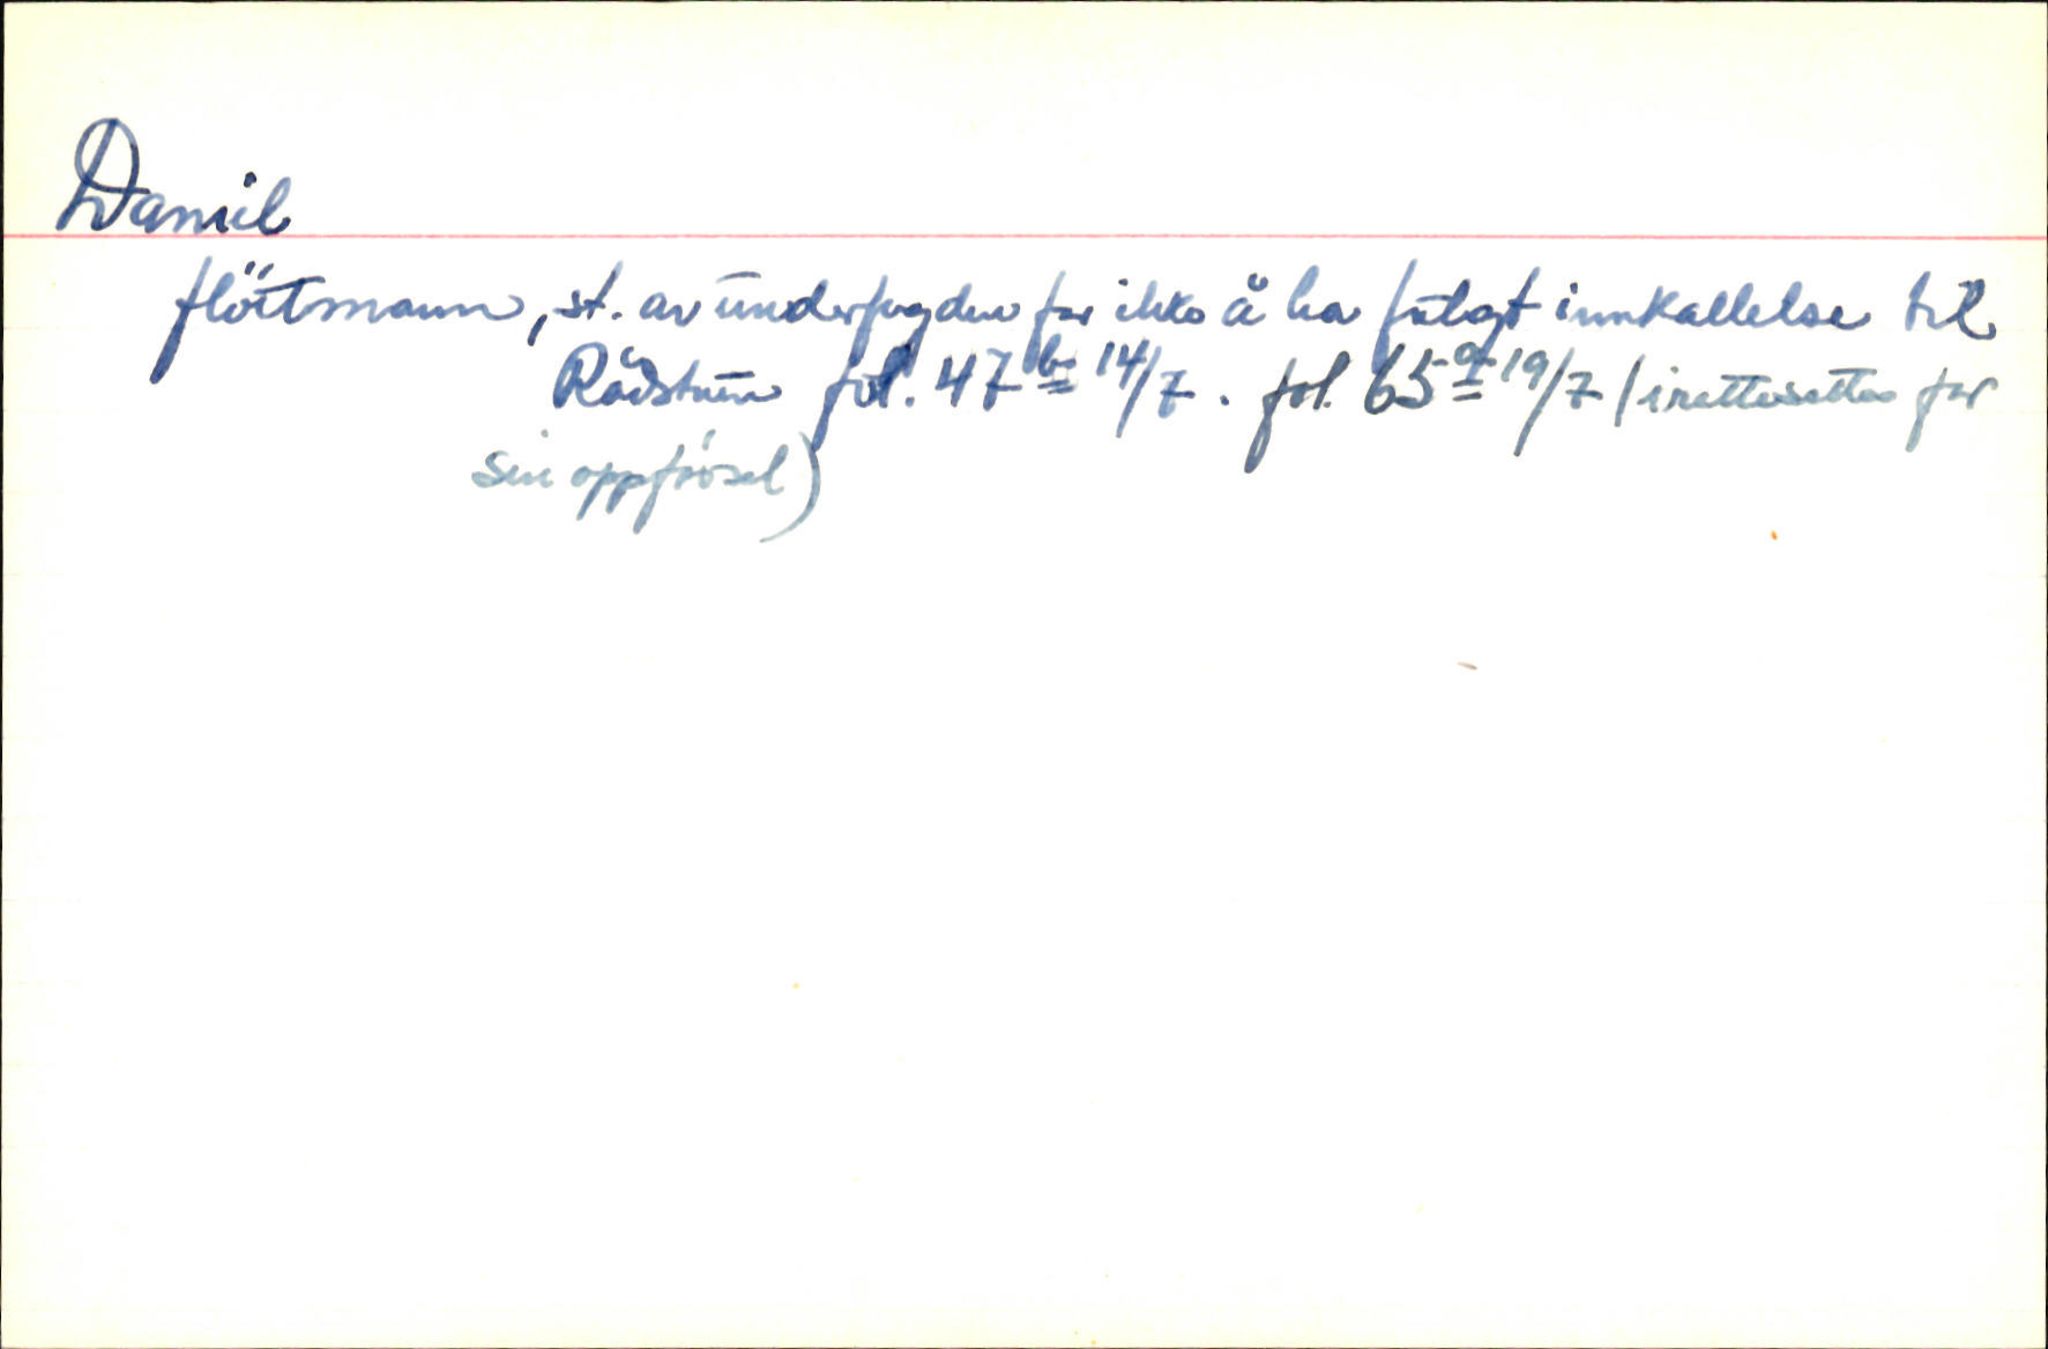 Daniel
flötmann, st. av underfogden for ikke å ha fulgt innkallelse til
Rådstuen fol. 47b 14/7. fol. 65a 19/7 (irettesettes for
sin oppførsel)